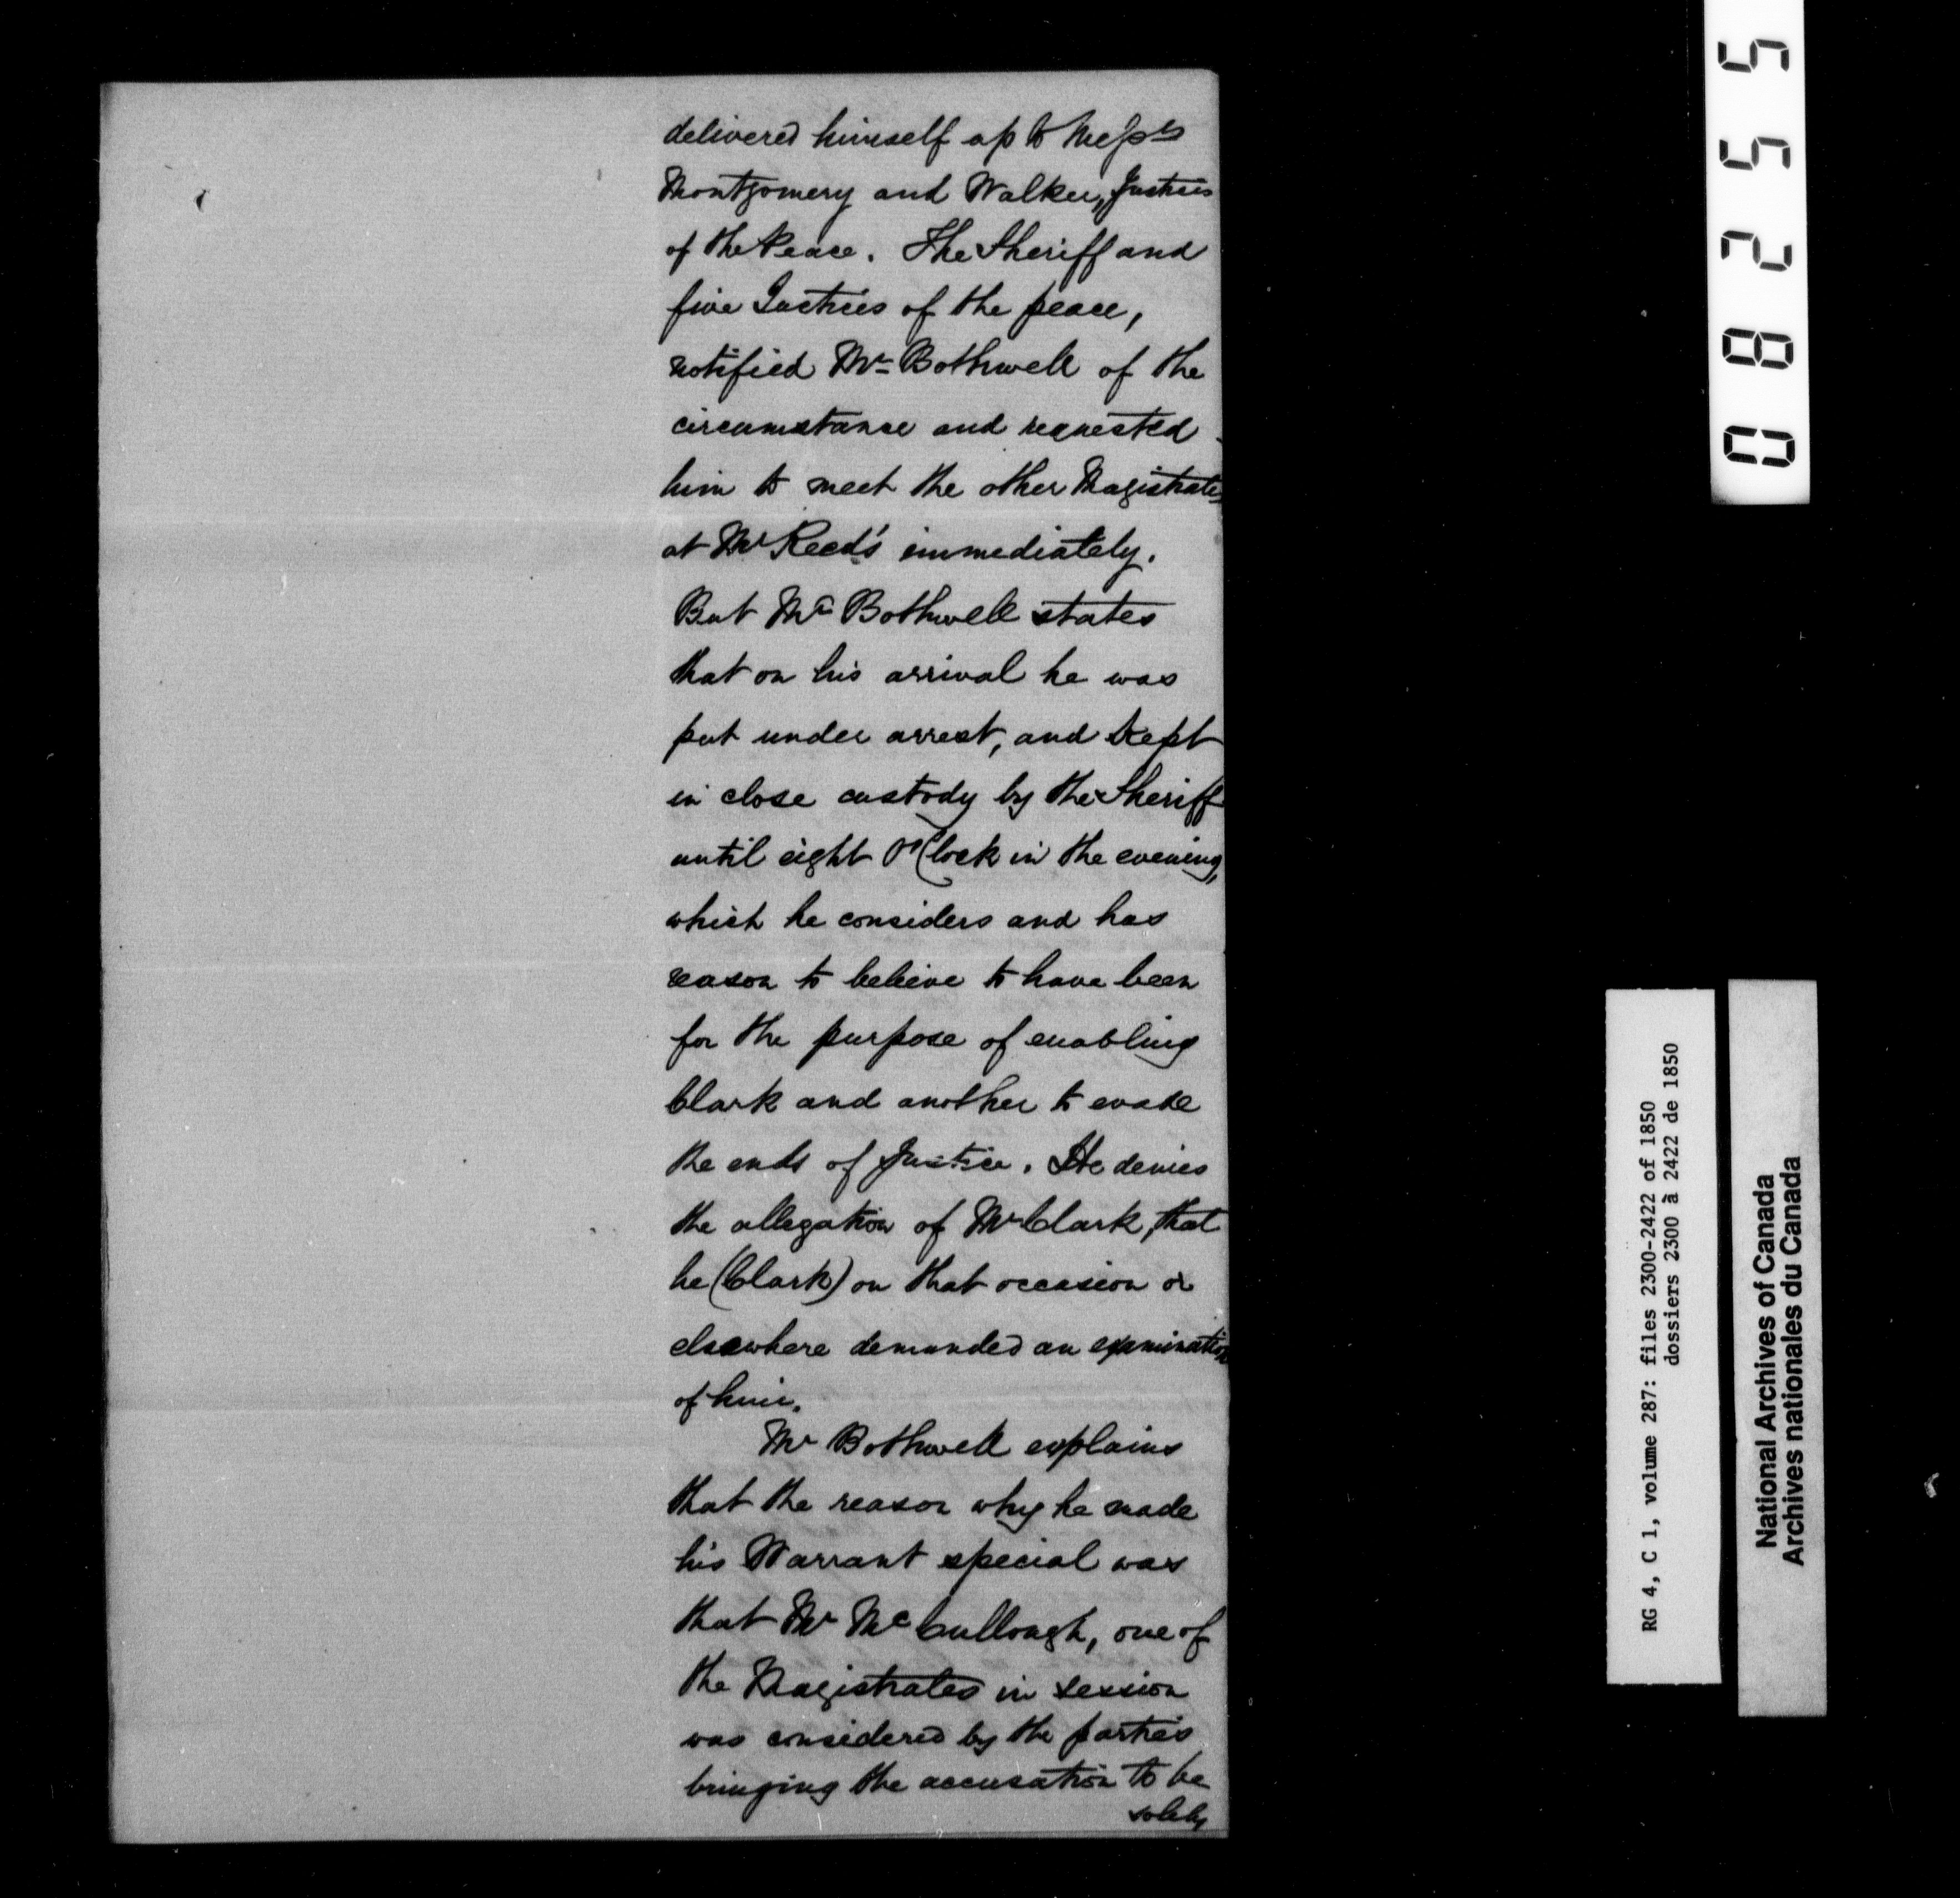 delivered himself up to Messrs
Montgomery and Walker, Justices
of the Peace. The Sheriff and
five Justices of the peace,
notified Mr Bothwell of the
circumstance and requested
him to meet the other Magistrates
at Mr Reed's immediately.
But Mr Bothwell states
that on his arrival he was
put under arrest, and kept
in close custody by the Sheriff
until eight O'Clock in the evening,
which he considers and has
reason to believe to have been
for the purpose of enabling
Clark and another to evade
the ends of Justice. He denies
the allegation of Mr Clark, that
he (Clark) on that occasion or
elsewhere demanded an examination
of him.
Mr Bothwell explains
that the reason why he made
his Warrant special was
that Mr McCullough, one of
the Magistrates in session
was considered by the parties
bringing the accusation to be
solely
08255
RG 4, C 1, volume 287: files 2300-2422 of 1850
dossiers 2300 à 2422 de 1850
National Archives of Canada
Archives nationales du Canada